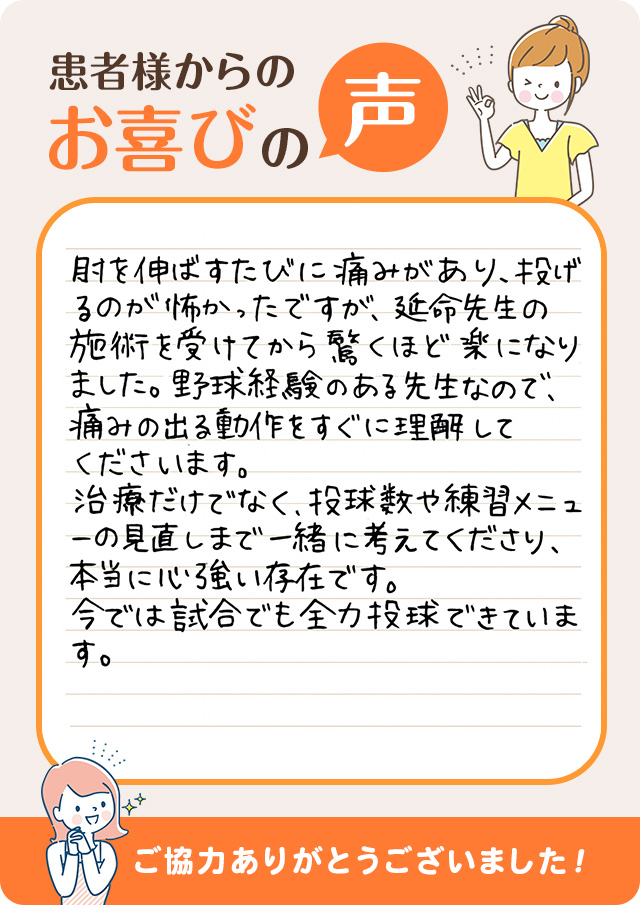 患者様からの
お喜びの声
肘を伸ばすたびに痛みがあり、投げ
るのが怖かったですが、延命先生の
施術を受けてから驚くほど楽になり
ました。野球経験のある先生なので、
痛みの出る動作をすぐに理解して
くださいます。
治療だけでなく、投球数や練習メニュ
ーの見直しまで一緒に考えてくださり、
本当に心強い存在です。
今では試合でも全力投球できていま
す。
ご協力ありがとうございました！